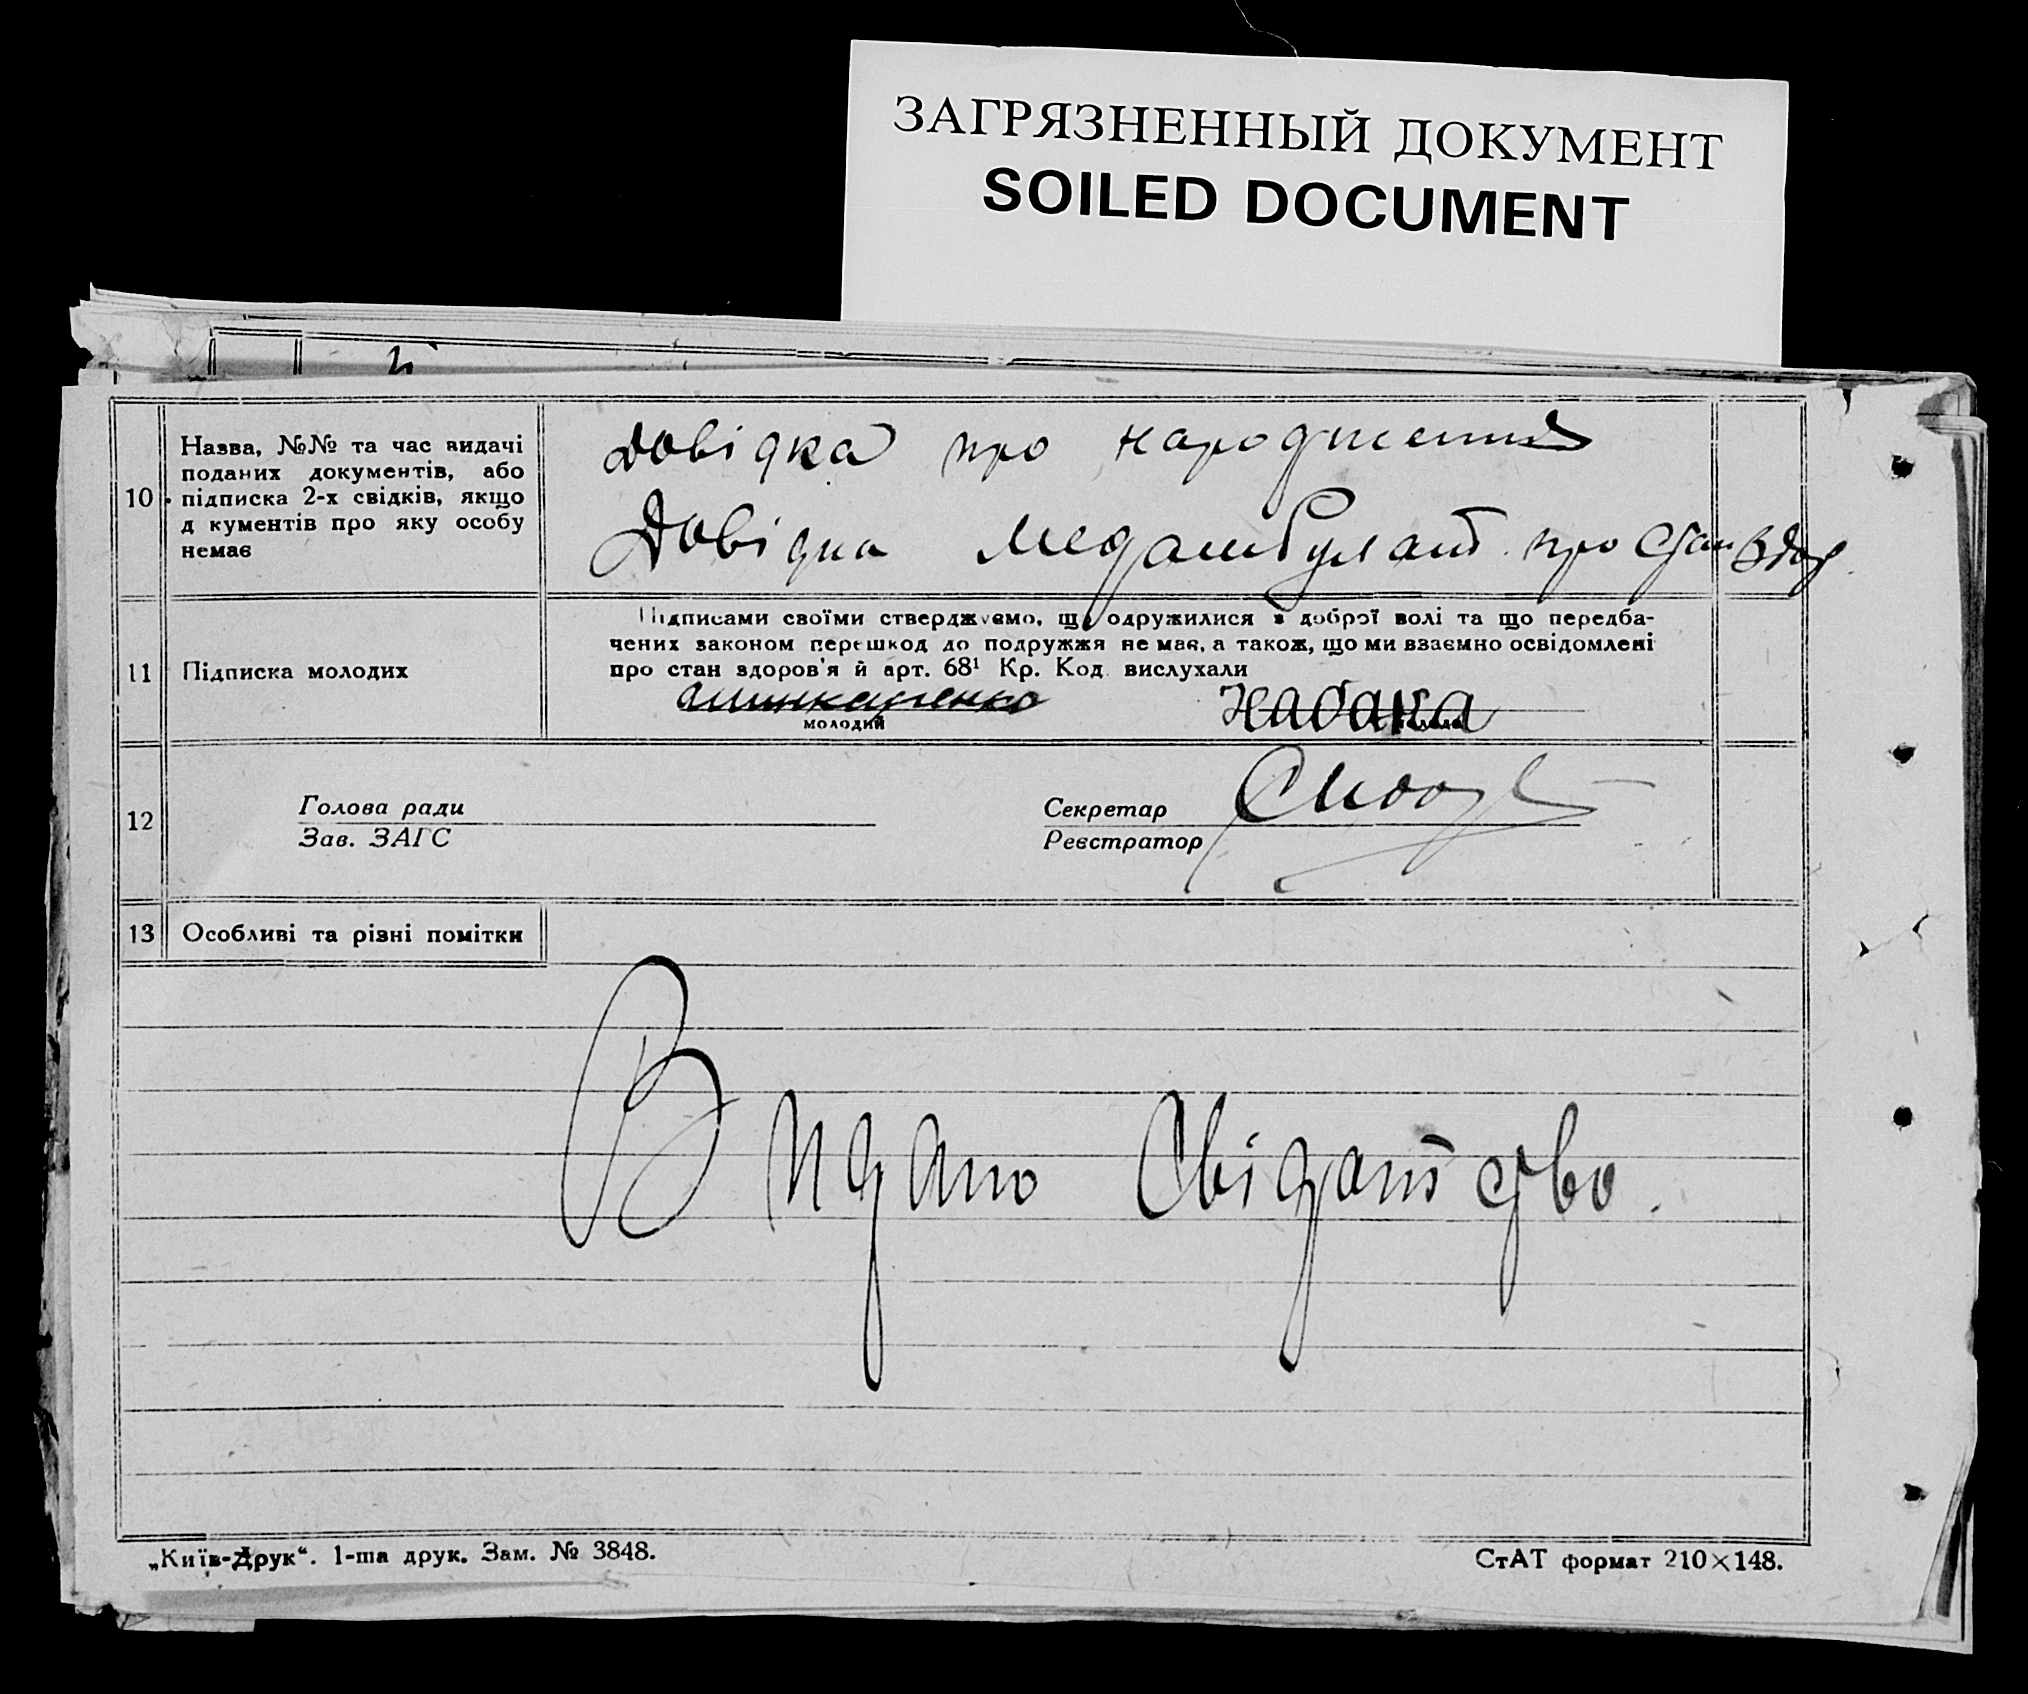 ЗАГРЯЗНЕННЫЙ ДОКУМЕНТ
SOILED DOCUMENT
10 Назва, №№ та час видачі
поданих документів, або
підписка 2-х свідків, якщо
д кументів про яку особу
немає
Довідка про народження
Довідка медамбулат. про стан здор.
11 Підписка молодих
Підписами своїми стверджуємо, що одружилися з доброї волі та що передба-
чених законом перешкод до подружжя не має, а також, що ми взаємно освідомлені
про стан здоров'я й арт. 68¹ Кр. Код. вислухали
Шинкаренко Набака
молодий
12 Голова ради Секретар
Зав. ЗАГС Реєстратор
13 Особливі та різні помітки
Видано Свідатство.
„Київ-Друк“. 1-ша друк. Зам. № 3848. СтАТ формат 210×148.